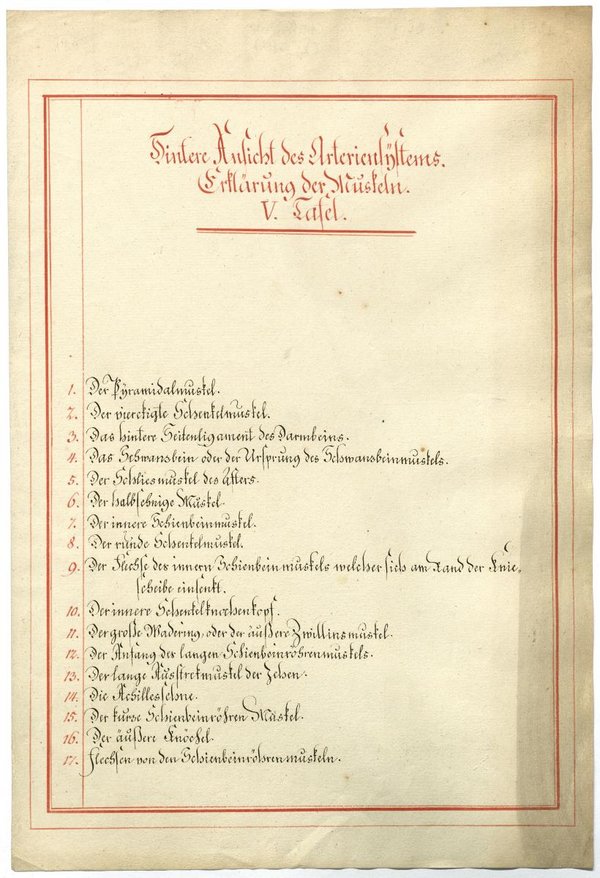 Hintere Ansicht des Arteriensÿstems.
Erklärung der Muskeln.
V. Tafel.
1. Der Pÿramidalmuskel.
2. Der vierekigte Schenkelmuskel.
3. Das hintere Seitenligament des Darmbeins.
4. Das Schwansbein oder der Ursprung des Schwansbeinmuskels.
5. Der Schliesmuskel des Afters.
6. Der halbsehnige Muskel.
7. Der innere Schienbeinmuskel.
8. Der runde Schenkelmuskel.
9. Der Flechse des innern Schienbeinmuskels welcher sich am Rand der Knie-
scheibe einsenkt.
10. Der innere Schenkelknochenkopf.
11. Der große Wadering, oder der äußere Zwillinsmuskel.
12. Der Anfang der langen Schienbeinröhrenmuskels.
13. Der lange Ausstrekmuskel der Zehen.
14. Die Achillessehne.
15. Der kurse Schienbeinröhren Muskel.
16. Der äußere Knöchel.
17. Flechsen von den Schienbeinröhrenmuskeln.